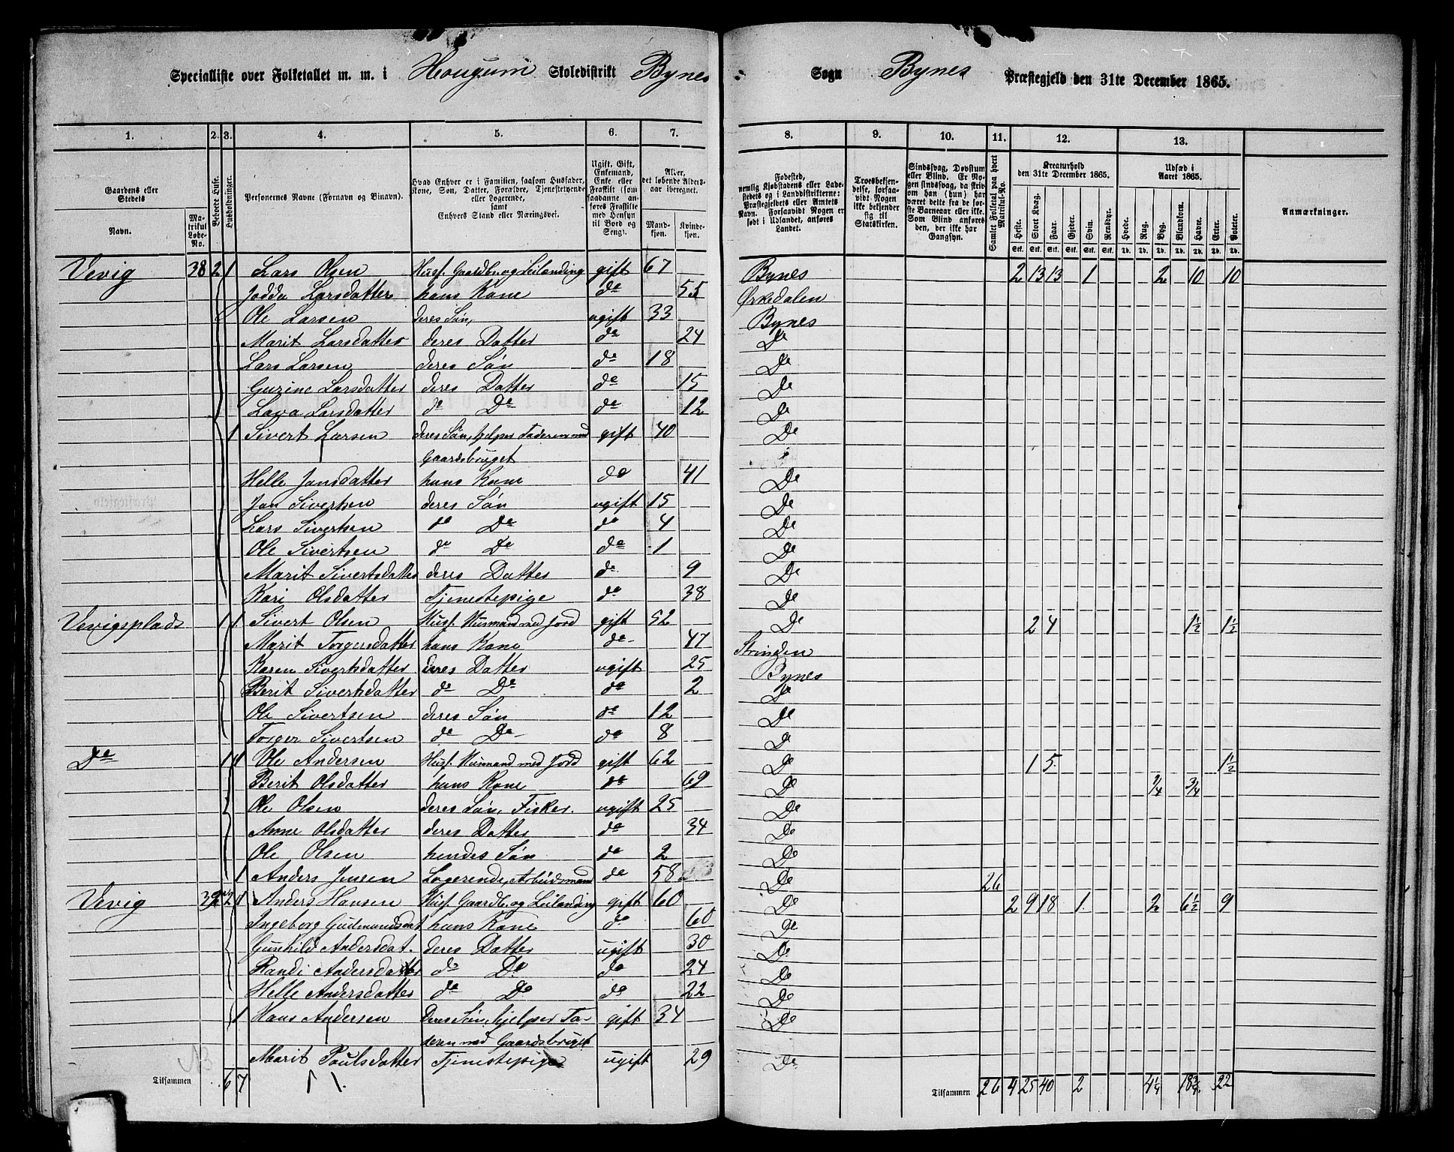 Specialliste over Folketallet m. m. i Hougum Skoledistrikt Bynes Sogn Bynes Præstegjeld den 31te December 1865.
1. 2. 3. 4. 5. 6. 7. 8. 9. 10. 11. 12. 13.
Gaardens eller Stedets Navn. Matrikul Løbe-No. Beboede Huse. Husholdninger. Personernes Navne (Fornavn og Binavn). Hvad Enhver er i Familien, saasom Husfader, Kone, Søn, Datter, Forældre, Tjenestetyende eller Logerende, samt Enhvers Stand eller Næringsvei. Ugift, Gift, Enkemand, Enke eller Fraskilt Alder, det løbende Alders-aar iberegnet. Mandkjøn. Kvindekjøn. Fødested, Kreaturhold den 31te December 1865. Udsæd i Aaret 1865. Anmærkninger.
Heste. Stort Kvæg. Faar. Gjeder. Svin. Rensdyr. Hvede. Rug. Byg. Blandkorn. Havre. Erter. Poteter.
Vevig 38 2 1 Lars Olsen Husf. Gaardbr. og Leilænding gift 67 Bynes 2 13 13 1 2 10 10
Jodda Larsdatter hans Kone do 55 Ørkedalen
Ole Larsen deres Søn, ugift 33 Bynes
Marit Larsdatter deres Datter do 24 Do
Lars Larsen deres Søn do 18 Do
Gurine Larsdatter deres Datter do 15 Do
Larsdatter do Do do 12 Do
1 Sivert Larsen deres Søn, hjelper Faderen med gift 40 Do
Gaardsbruget
Helle Jansdatter hans Kone do 41 Do
Jan Sivertsen deres Søn ugift 15 Do
Lars Sivertsen do Do do 4 Do
Ole Sivertsen do Do do 1 Do
Marit Sivertsdatter deres Datter do 9 Do
Kari Olsdatter Tjenestepige do 38 Do
Vevigsplads 1 1 Sivert Olsen Husf. Husmand med Jord gift 52 Do 2 4 1½ 1½
Marit Torgersdatter hans Kone do 47 Strinden
Karen Sivertsdatter deres Datter ugift 25 Bynes
Berit Sivertsdatter do Do do 2 Do
Ole Sivertsen deres Søn do 12 Do
Torger Sivertsen do Do do 8 Do
Do 1 1 Ole Andersen Husf. Husmand med Jord gift 62 Do 1 5 1½
Berit Olsdatter hans Kone do 62 Do ¼ ¾
Ole Olsen deres Søn, Fisker. ugift 25 Do
Anne Olsdatter deres Datter do 34 Do
Ole Olsen hendes Søn do 2 Do
1 Anders Jensen Logerende, Arbeidsmand do 58 Do 26
Vevig 39 2 1 Anders Hansen Husf. Gaardbr. og Leilænding gift 60 Do 2 9 18 1 2 6½ 9
Ingeborg Gudmundsdat hans Kone do 60 Do
Gunhild Andersdat. deres Datter ugift 30 Do
Randi Andersdatter do Do do 24 Do
Helle Andersdatter do Do do 22 Do
1 Hans Andersen Deres Søn, hjelper Fa- gift 34 Do
deren med Gaardsbruget
Marit Paulsdatter Tjenestepige ugift 29 Do
Tilsammen 6 7 Tilsammen 26 4 25 40 2 4¼ 18¾ 22